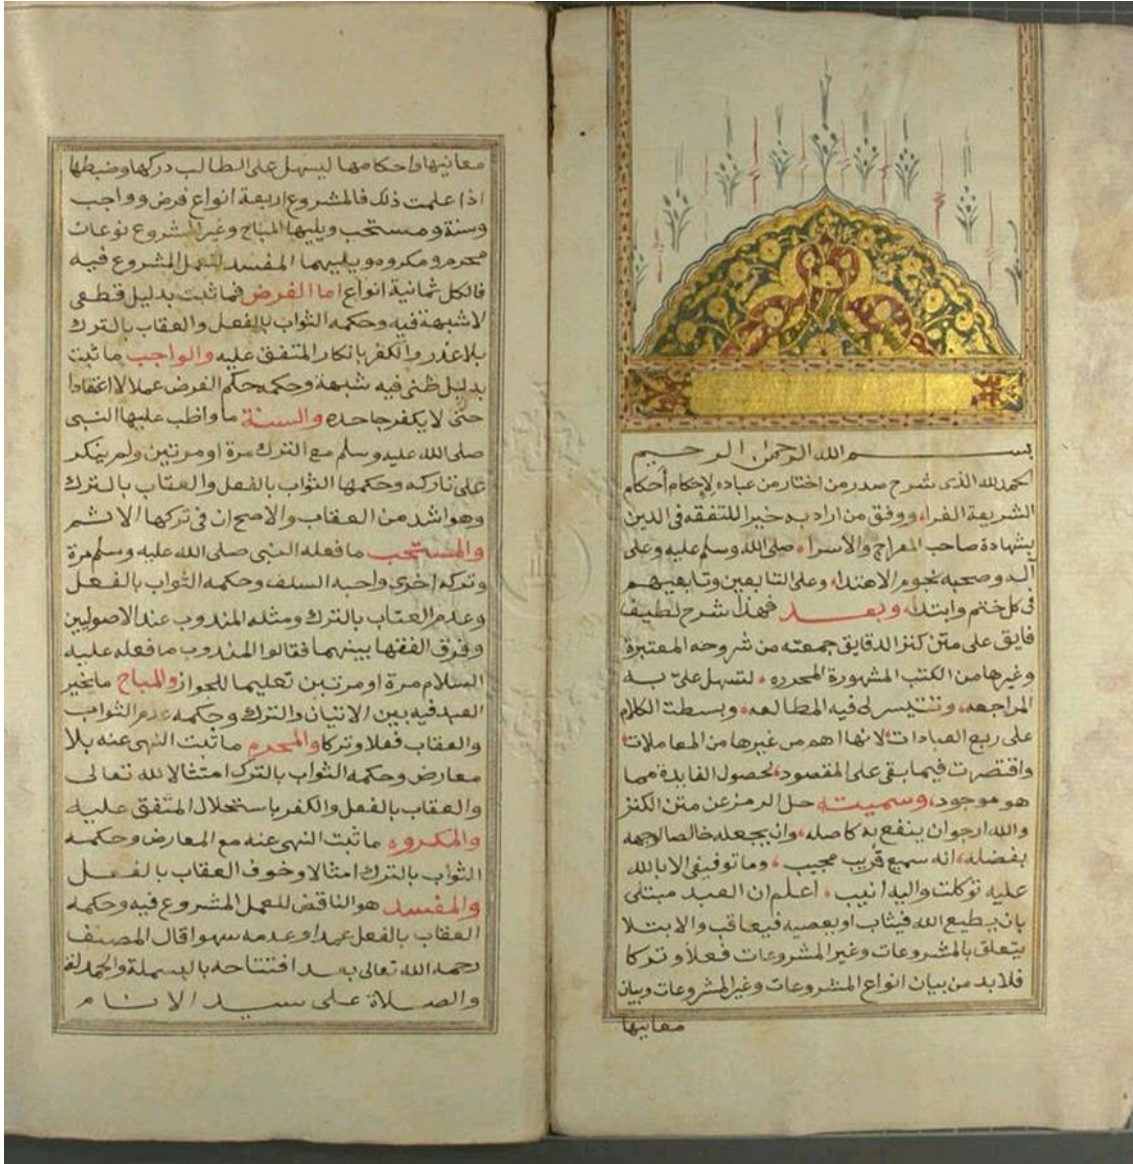 بســـــم الله الرحمن الرحيم
الحمد لله الذى شرح صدر من اختار من عباده لإحكام أحكام
الشريعة الغراء، ووفق من اراد به خيرا للتفقه فى الدين
بشهادة صاحب المعراج والاسراء، صلى الله وسلم عليه وعلى
آله وصحبه نجوم الاهتداء، وعلى التابعين وتابعيهم
فى كل ختم وابتداء، وبعـــد فهذا شرح لطيف
فايق على متن كنز الدقايق جمعته من شروحه المعتبرة
وغيرها من الكتب المشهورة المحرره، لتسهل علىّ به
المراجعه، وتتيسر لى فيه المطالعه، وبسطت الكلام
على ربع العبادات، لانها اهم من غيرها من المعاملات،
واقتصرت فيما بقى على المقصود، لحصول الفايدة مما
هو موجود، وسميته حل الرمز عن متن الكنز
والله ارجو ان ينفع به كاصله، وان يجعله خالصا لوجهه
بفضله، انه سميع قريب مجيب، وما توفيقى الا بالله
عليه توكلت واليه انيب، اعلم ان العبد مبتلى
بان يطيع الله فيثاب او يعصيه فيعاقب والابتلا
يتعلق بالمشروعات وغير المشروعات فعلا وتركا
فلا بد من بيان انواع المشروعات وغير المشروعات وبيان
معانيها
معانيها واحكامها ليسهل على الطالب دركها وضبطها
اذا علمت ذلك فالمشروع اربعة انواع فرض وواجب
وسنة ومستحب ويليها المباح وغير المشروع نوعان
محرم ومكروه ويليهما المفسد للعمل المشروع فيه
فالكل ثمانية انواع اما الفرض فما ثبت بدليل قطعى
لا شبهة فيه وحكمه الثواب بالفعل والعقاب بالترك
بلا عذر والكفر بانكار المتفق عليه والواجب ما ثبت
بدليل ظنى فيه شبهة وحكمه حكم الفرض عملا لا اعتقادا
حتى لا يكفر جاحده والسنة ما واظب عليها النبى
صلى الله عليه وسلم مع الترك مرة او مرتين ولم ينكر
على تاركه وحكمها الثواب بالفعل والعتاب بالترك
وهو اشد من العقاب والاصح ان فى تركها الاثم
والمستحب ما فعله النبى صلى الله عليه وسلم مرة
وتركه اخرى واحبه السلف وحكمه الثواب بالفعل
وعدم العتاب بالترك ومثله المندوب عند الاصوليين
وفرق الفقها بينهما فقالوا المندوب ما فعله عليه
السلام مرة او مرتين تعليما للجواز والمباح ما يخير
العبد فيه بين الاتيان والترك وحكمه عدم الثواب
والعقاب فعلا وتركا والمحرم ما ثبت النهى عنه بلا
معارض وحكمه الثواب بالترك امتثالا لله تعالى
والعقاب بالفعل والكفر باستحلال المتفق عليه
والمكروه ما ثبت النهى عنه مع المعارض وحكمه
الثواب بالترك امتثالا وخوف العقاب بالفعل
والمفسد هو الناقض للعمل المشروع فيه وحكمه
العقاب بالفعل عمدا وعدمه سهوا قال المصنف
رحمه الله تعالى بعد افتتاحه بالبسملة والحمدلة
والصلاة على سيد الانام